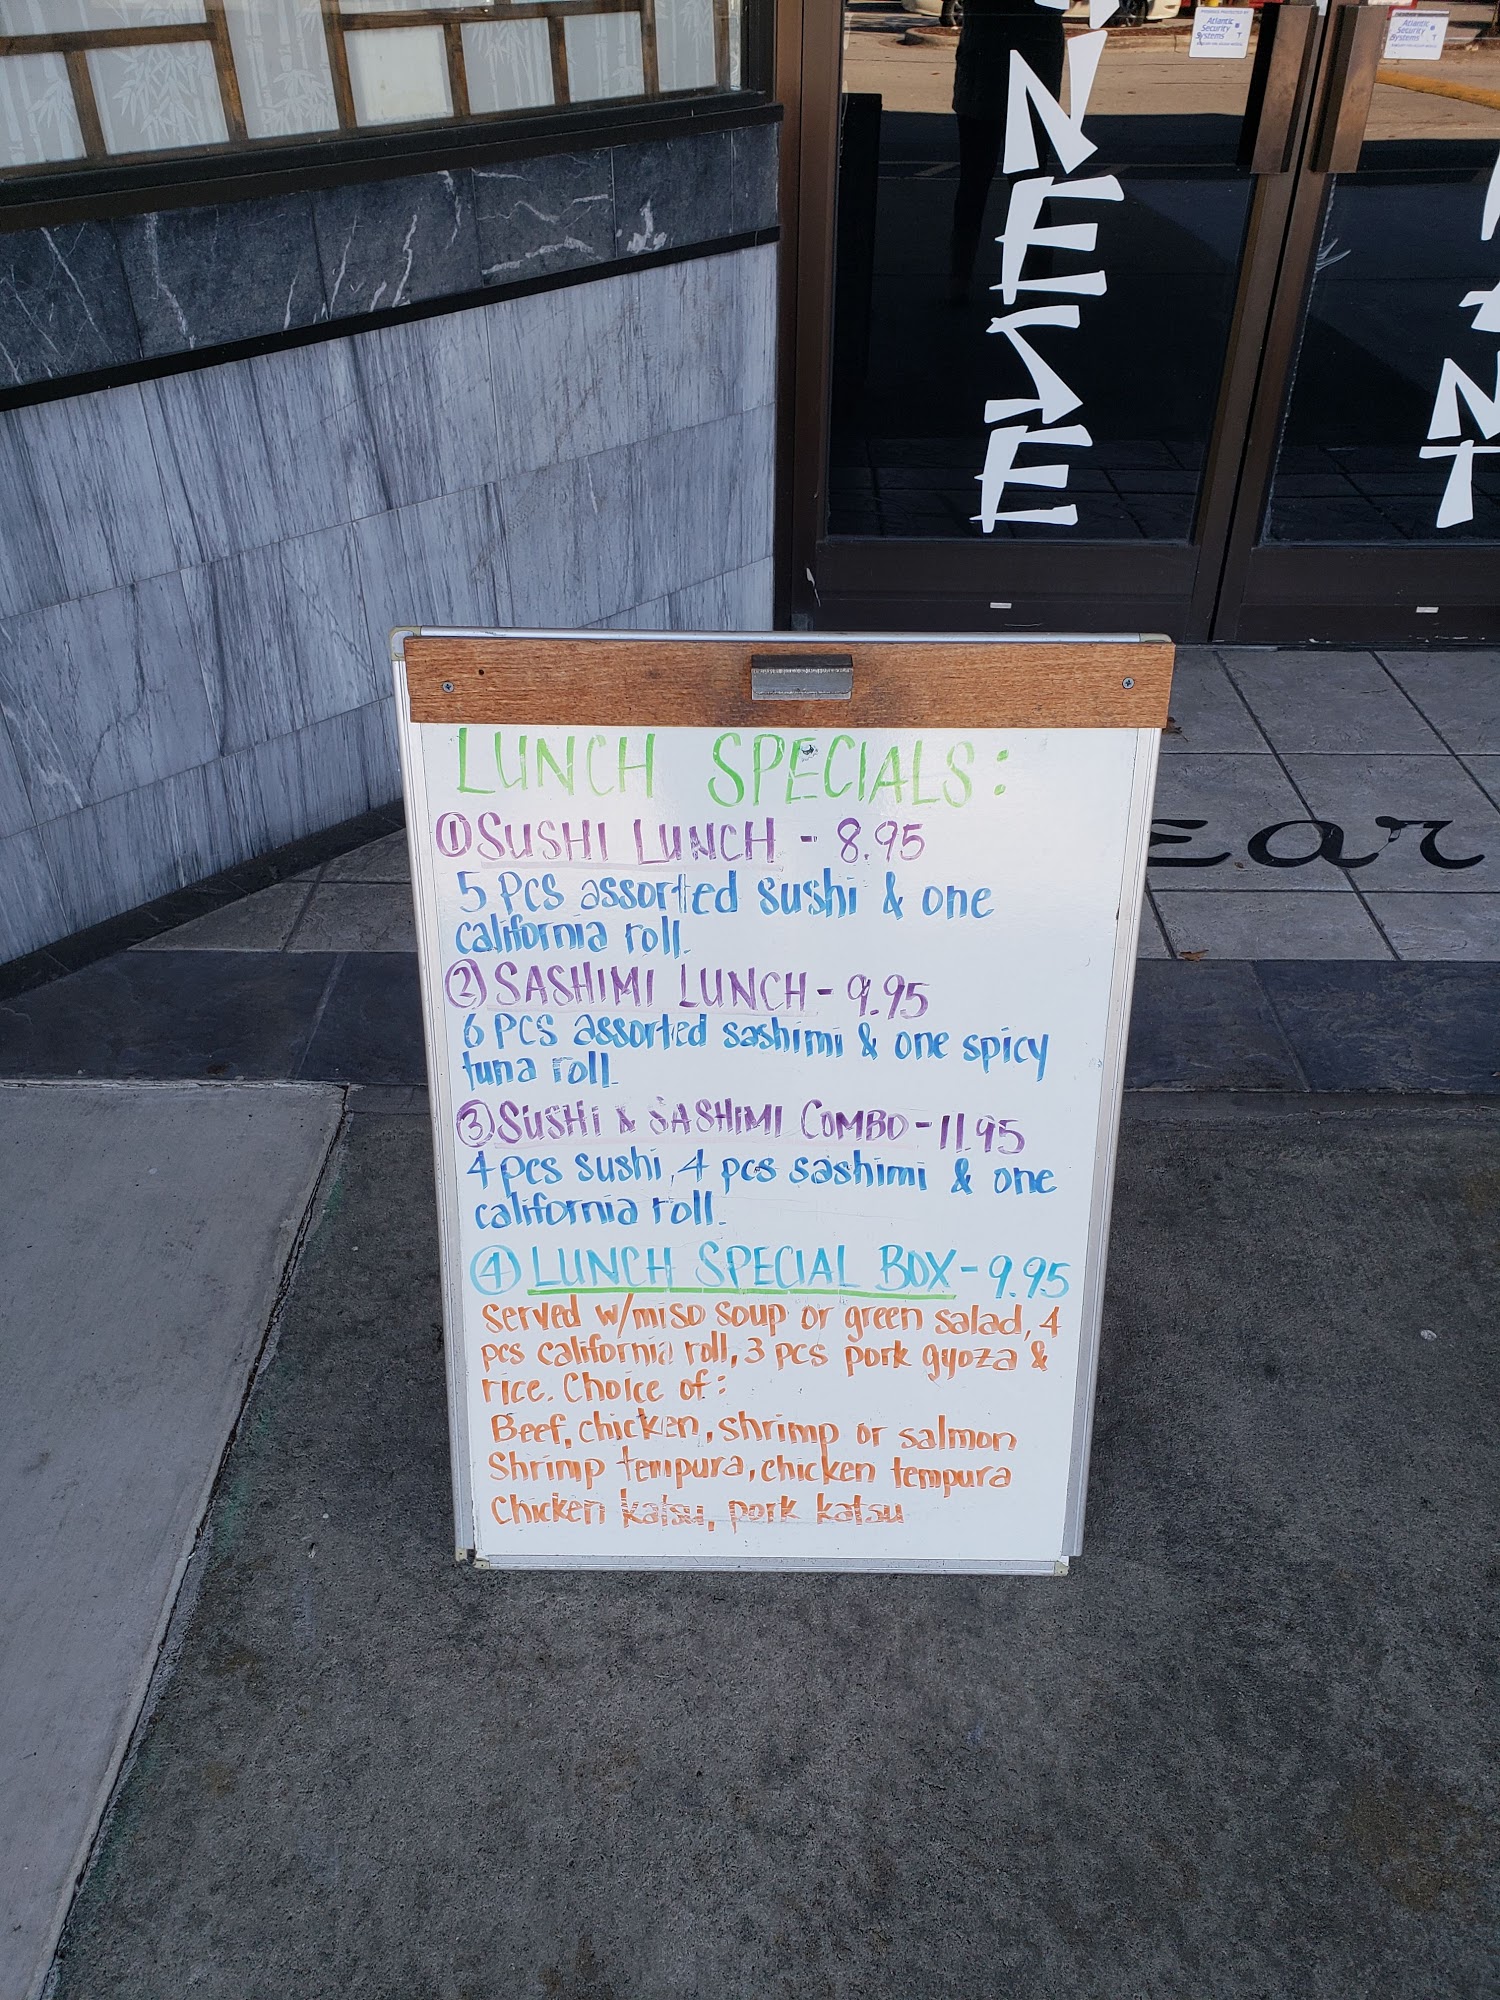 Atlantic
Security
Systems
Atlantic
Security
Systems
NESE
ANT
ear
LUNCH SPECIALS:
① SUSHI LUNCH - 8.95
5 Pcs assorted sushi & one
california roll.
② SASHIMI LUNCH - 9.95
6 PCS assorted sashimi & one spicy
tuna roll.
③ SUSHI & SASHIMI COMBO - 11.95
4 pcs sushi, 4 pcs sashimi & one
california roll.
④ LUNCH SPECIAL BOX - 9.95
served w/miso soup or green salad, 4
pcs california roll, 3 pcs pork gyoza &
rice. Choice of:
Beef, chicken, shrimp or salmon
Shrimp tempura, chicken tempura
Chicken katsu, pork katsu